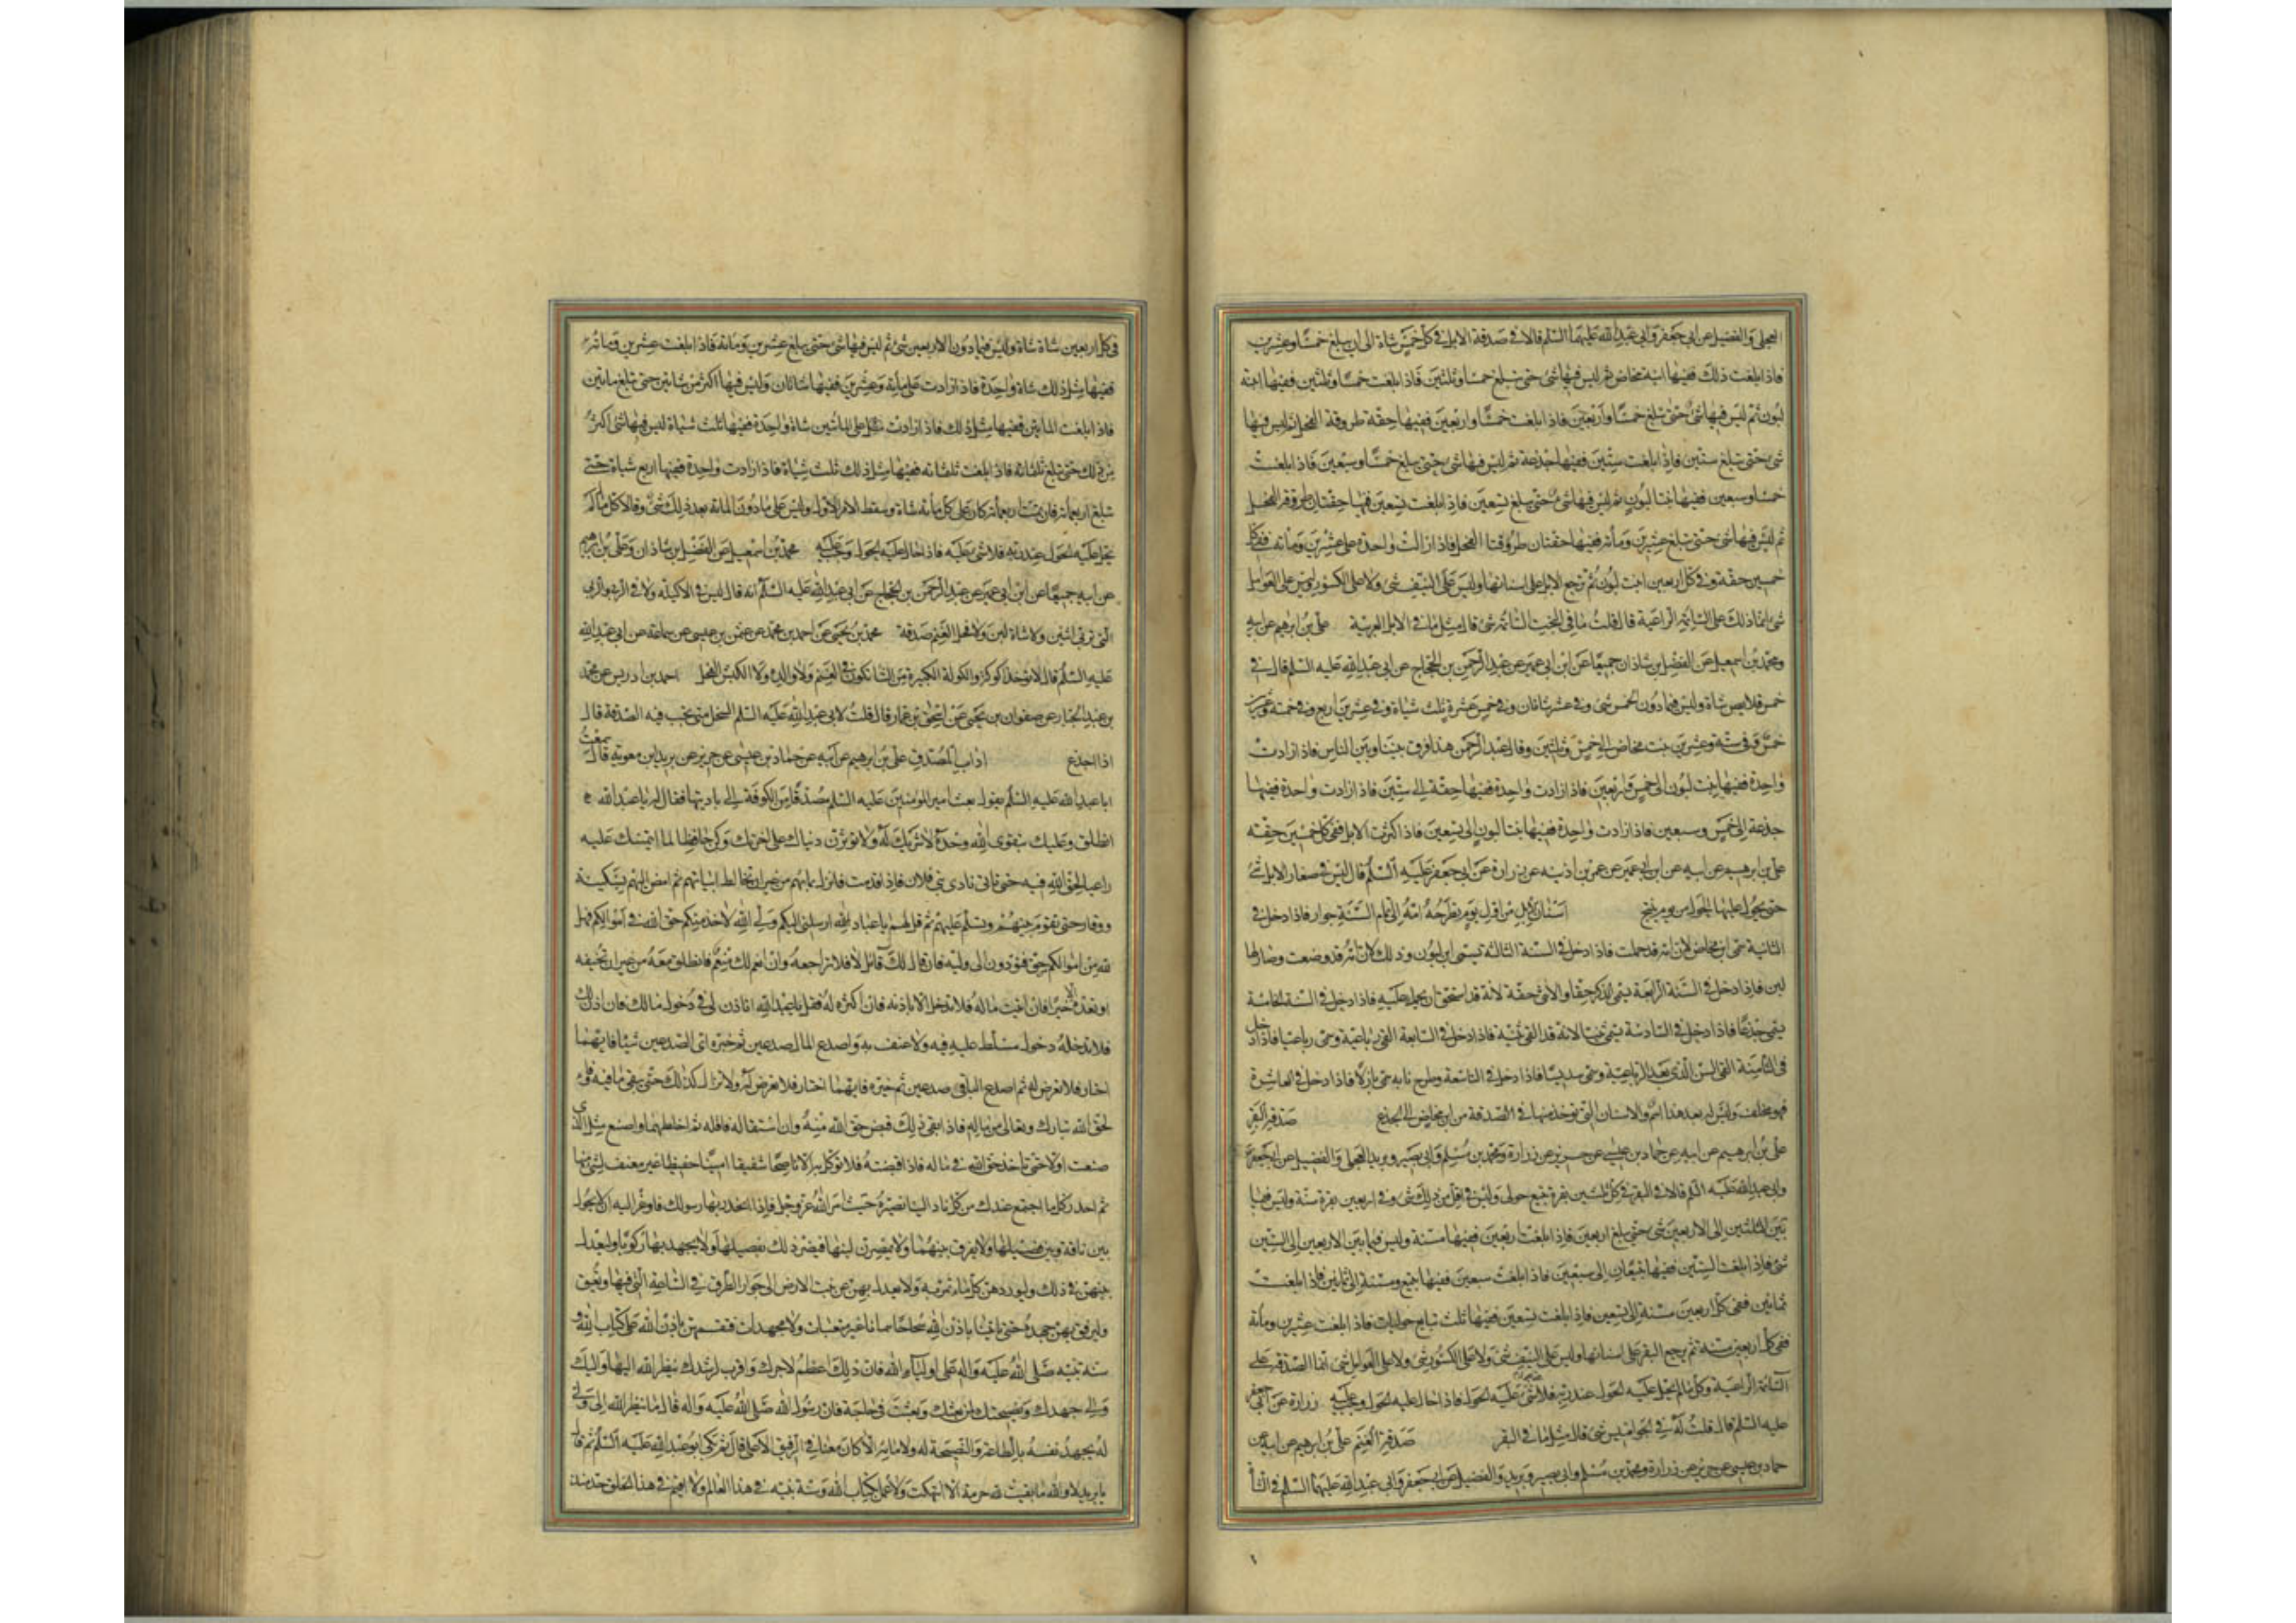 العجلي والفضيل عن ابي جعفر وابي عبد الله عليهما السلم قالا في صدقة الابل في كل خمس شاة الى ان يبلغ خمسا وعشرين
فاذا بلغت ذلك ففيها ابنة مخاض ثم ليس فيها شئ حتى تبلغ خمسا وثلثين فاذا بلغت خمسا وثلثين ففيها ابنة
لبون ثم ليس فيها شئ حتى تبلغ خمسا واربعين فاذا بلغت خمسا واربعين ففيها حقة طروقة الفحل ثم ليس فيها
شئ حتى تبلغ ستين فاذا بلغت ستين ففيها جذعة ثم ليس فيها شئ حتى تبلغ خمسا وسبعين فاذا بلغت
خمسا وسبعين ففيها بنتا لبون ثم ليس فيها شئ حتى تبلغ تسعين فاذا بلغت تسعين ففيها حقتان طروقتا الفحل
ثم ليس فيها شئ حتى تبلغ عشرين ومأئة ففيها حقتان طروقتا الفحل فاذا زادت واحدة على عشرين ومائة ففي كل
خمسين حقة وفي كل اربعين ابنت لبون ثم ترجع الابل على اسنانها وليس على النيف شئ ولا على الكسور شئ وليس على العوامل
شئ انما ذلك على السائمة الراعية قال قلت ما في البخت السائمة شئ قال مثل ما في الابل العربية علي بن ابرهيم عن ابيه
ومحمد بن اسمعيل عن الفضل بن شاذان جميعا عن ابن ابي عمير عن عبد الرحمن بن الحجاج عن ابي عبد الله عليه السلم قال في
خمس قلايص شاة وليس فيما دون الخمس شئ وفي عشر شاتان وفي خمس عشرة ثلث شياة وفي عشرين اربع وفي خمسة وعشرين
خمس وفي ستة وعشرين بنت مخاض الى خمس وثلثين وقال عبد الرحمن هذا فرق بيننا وبين الناس فاذا زادت
واحدة ففيها بنت لبون الى خمس واربعين فاذا زادت واحدة ففيها حقة الى ستين فاذا زادت واحدة ففيها
جذعة الى خمس وسبعين فاذا زادت واحدة ففيها بنتا لبون الى تسعين فاذا كثرت الابل ففي كل خمسين حقة
علي بن ابرهيم عن ابيه عن ابن ابي عمير عن عمر بن اذينه عن زرارة عن ابي جعفر عليه السلم قال ليس في صغار الابل شئ
حتى يحول عليها الحول من يوم ينتج اسنان الابل من اول يوم تطرحه امه الى تمام السنة حوار فاذا دخل في
الثانية سمى ابن مخاض لان امه قد حملت فاذا دخل في السنة الثالثة يسمى ابن لبون وذلك ان امه قد وضعت وصار لها
لبن فاذا دخل في السنة الرابعة يسمى الذكر حقا والانثى حقة لانه قد استحق ان يحمل عليه فاذا دخل في السنة الخامسة
يسمى جذعا فاذا دخل في السادسة يسمى ثنيا لانه قد القى ثنيه فاذا دخل في السابعة القى رباعيته وسمى رباعيا فاذا دخل
في الثامنة القى السن الذي بعد الرباعية وسمى سديسا فاذا دخل في التاسعة وطرح نابه سمى بازلا فاذا دخل في العاشرة
فهو مخلف وليس له بعد هذا اسم والاسنان التي تؤخذ منها في الصدقة من ابن مخاض الى الجذع صدقة البقر
علي بن ابرهيم عن ابيه عن حماد بن عيسى عن حريز عن زرارة ومحمد بن مسلم وابي بصير وبريد العجلي والفضيل عن ابي جعفر
وابي عبد الله عليه السلم قالا في البقر في كل ثلثين بقرة تبيع حولى وليس في اقل من ذلك شئ وفي اربعين بقرة مسنة وليس فيما
بين الثلثين الى الاربعين شئ حتى تبلغ اربعين فاذا بلغت اربعين ففيها مسنة وليس فيما بين الاربعين الى الستين
شئ فاذا بلغت الستين ففيها تبيعان الى سبعين فاذا بلغت سبعين ففيها تبيع ومسنة الى ثمانين فاذا بلغت
ثمانين ففي كل اربعين مسنة الى تسعين فاذا بلغت تسعين ففيها ثلث تبايع حوليات فاذا بلغت عشرين ومائة
ففي كل اربعين مسنة ثم يرجع البقر على اسنانها وليس على النيف شئ ولا على الكسور شئ ولا على العوامل شئ انما الصدقة على
السائمة الراعية وكل ما لم يحل عليه الحول عند ربه فلا شئ عليه الحول فاذا حال عليه الحول وجب عليه زرارة عن ابي جعفر
عليه السلم قال قلت له في الجواميس شئ قال مثل ما في البقر صدقة الغنم علي بن ابرهيم عن ابيه عن
حماد بن عيسى عن حريز عن زرارة ومحمد بن مسلم وابي بصير وبريد والفضيل عن ابي جعفر وابي عبد الله عليهما السلم في الشأ
في كل اربعين شاة شاة وليس فيما دون الاربعين شئ ثم ليس فيها شئ حتى تبلغ عشرين ومائة فاذا بلغت عشرين ومائة
ففيها مثل ذلك شاة واحدة فاذا زادت على مائة وعشرين ففيها شاتان وليس فيها اكثر من شاتين حتى تبلغ مائتين
فاذا بلغت المائتين ففيها مثل ذلك فاذا زادت على المائتين شاة واحدة ففيها ثلث شياة ثم ليس فيها شئ اكثر
من ذلك حتى تبلغ ثلثمائة فاذا بلغت ثلثمائه ففيها مثل ذلك ثلث شياة فاذا زادت واحدة ففيها اربع شياة حتى
تبلغ اربعمائة فان تمت اربعمائة كان على كل مائة شاة وسقط الامر الاول وليس على ما دون المائة بعد ذلك شئ وقالا كل ما لم
يحل عليه الحول عند ربه فلا شئ عليه فاذا حال عليه الحول وجب عليه محمد بن اسمعيل عن الفضل بن شاذان وعلي بن ابرهيم
عن ابيه جميعا عن ابن ابي عمير عن عبد الرحمن بن الحجاج عن ابي عبد الله عليه السلم انه قال ليس في الاكيلة ولا في الربى والربى
التي تربي اثنين ولا شاة لبن ولا فحل الغنم صدقة محمد بن يحيى عن احمد بن محمد عن عثمن بن عيسى عن سماعة عن ابي عبد الله
عليه السلم قال لا تؤخذ اكولة والاكولة الكبيرة من الشاة تكون في الغنم ولا والده ولا الكبش الفحل احمد بن ادريس عن محمد
بن عبد الجبار عن صفوان بن يحيى عن اسحق بن عمار قال قلت لابي عبد الله عليه السلم السخل متى تجب فيه الصدقة قال
اذا اجذع اداب المصدق علي بن ابرهيم عن ابيه عن حماد بن عيسى عن حريز عن بريد بن معوية قال سمعت
ابا عبد الله عليه السلم يقول بعث امير المؤمنين عليه السلم مصدقا من الكوفة الى باديتها فقال له يا عبد الله
انطلق وعليك بتقوى الله وحده لا شريك له ولا تؤثرن دنياك على اخرتك وكن حافظا لما ائتمنتك عليه
راعيا لحق الله فيه حتى تاتي نادى بني فلان فاذا قدمت فانزل بمائهم من غير ان تخالط ابياتهم ثم امض اليهم بسكينة
ووقار حتى تقوم بينهم وتسلم عليهم ثم قل لهم يا عباد الله ارسلني اليكم ولي الله لاخذ منكم حق الله في اموالكم فهل
لله من اموالكم حق فتؤدون الى وليه فان قال لك قائل لا فلا تراجعه وان انعم لك منعم فانطلق معه من غير ان تخيفه
او تعده الا خيرا فان اتيت ماله فلا تدخل الا باذنه فان اكثره له فقل يا عبد الله اتاذن لي في دخول مالك فان اذن لك
فلا تدخله دخول متسلط عليه فيه ولا عنف به واصدع المال صدعين ثم خيره اي الصدعين شئنا فايهما
اختار فلا تعرض له ثم اصدع الباقي صدعين ثم خيره فايهما اختار فلا تعرض له ولا تزال كذلك حتى يبقى ما فيه وفاء
لحق الله تبارك وتعالى من ماله فاذا بقي ذلك فاقبض حق الله منه وان استقالك فاقله ثم اخلطهما واصنع مثل الذي
صنعت اولا حتى تأخذ حق الله في ماله فاذا قبضته فلا توكل به الا ناصحا شفيقا امينا حفيظا غير معنف لشئ منها
ثم احدر كل ما اجتمع عندك من كل ناد الينا نصيره حيث امر الله عز وجل فاذا انحدر بها رسولك فاوعز اليه ان لا يحول
بين ناقة وبين فصيلها ولا يفرق بينهما ولا يمصرن لبنها فيضر ذلك بفصيلها ولا يجهد بها ركوبا وليعدل
بينهن في ذلك وليوردهن كل ماء تمر به ولا يعدل بهن عن نبت الارض الى جواد الطرق في الساعة التي فيها وتغبق
وليرفق بهن جهده حتى ياتينا باذن الله سحاحا سمانا غير متعبات ولا مجهدات فنقسمهن باذن الله على كتاب الله و
سنة نبيه صلى الله عليه واله على اولياء الله فان ذلك اعظم لاجرك واقرب لرشدك ينظر الله اليها واليك
والى جهدك ونصيحتك لمن بعثك وبعثت في حاجته فان رسول الله صلى الله عليه واله قال ما ينظر الله الى ولي
له يجهد نفسه بالطاعة والنصيحة له ولامامه الا كان معنا في الرفيق الاعلى قال ثم بكى ابو عبد الله عليه السلم ثم قال
يا بريد لا والله ما بقيت لله حرمة الا انتهكت ولا عمل بكتاب الله وسنة نبيه في هذا العالم ولا اقيم في هذا الخلق حد منذ